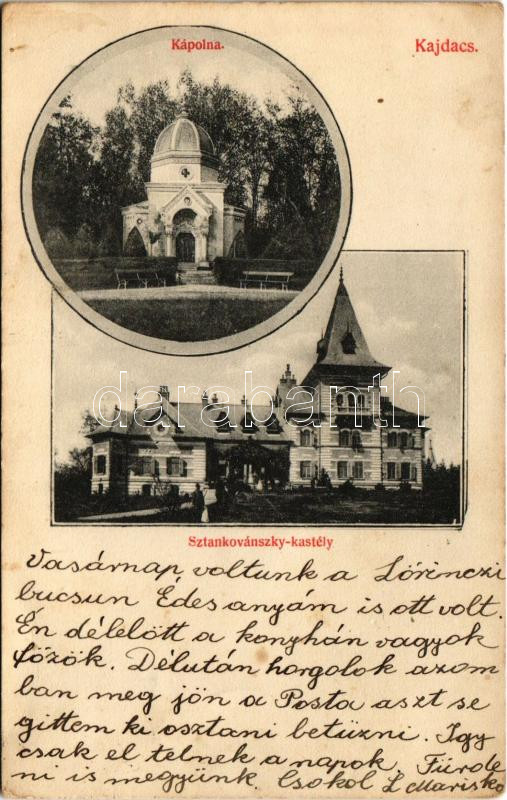 Kápolna.
Kajdacs.
darabanth
Sztankovánszky-kastély
Vasárnap voltunk a Lörinczi
bucsun Édesanyám is ott volt.
Én délelött a konyhán vagyok
főzök. Délután horgolok azom
ban meg jön a Posta aszt se
gittem ki osztani betüzni. Igy
csak el telnek a napok. Fürde
ni is megyünk. Csokol L Marisko